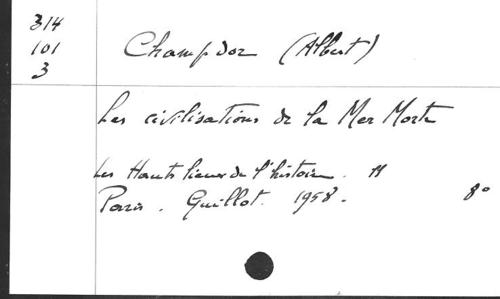 314
101
3
Champdor (Albert)
Les civilisations de la Mer Morte
Les Hauts lieux de l'histoire. 11
Paris. Guillot. 1958. 8°